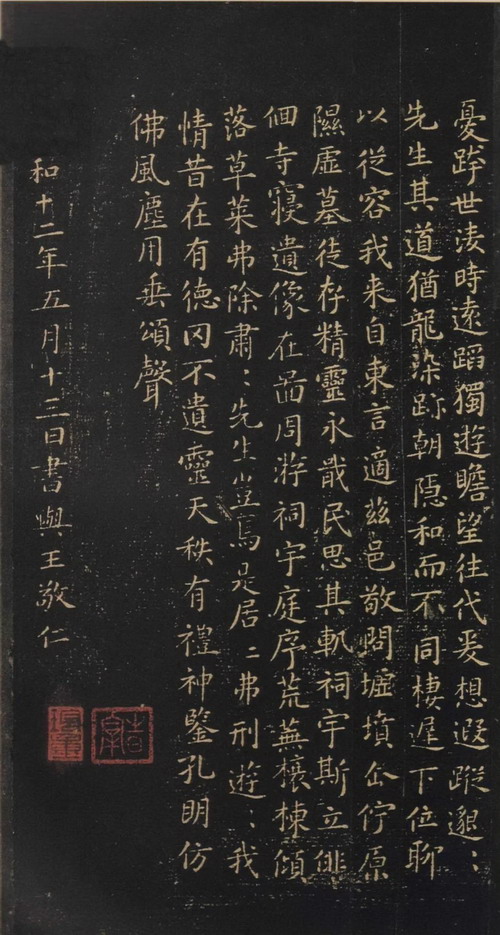 憂跨世凌時遠蹈獨遊瞻望往代爰想遐蹤邈〻
先生其道猶龍染跡朝隱和而不同棲遲下位聊
以從容我来自東言適茲邑敬問墟墳企佇原
隰虛墓徒存精靈永戢民思其軌祠宇斯立俳
佪寺寢遺像在啚周游祠宇庭序荒蕪榱棟傾
落草萊弗除肅〻先生豈焉是居〻弗刑遊〻我
情昔在有德罔不遺靈天秩有禮神鑒孔明仿
佛風塵用垂頌聲
和十二年五月十三日書與王敬仁